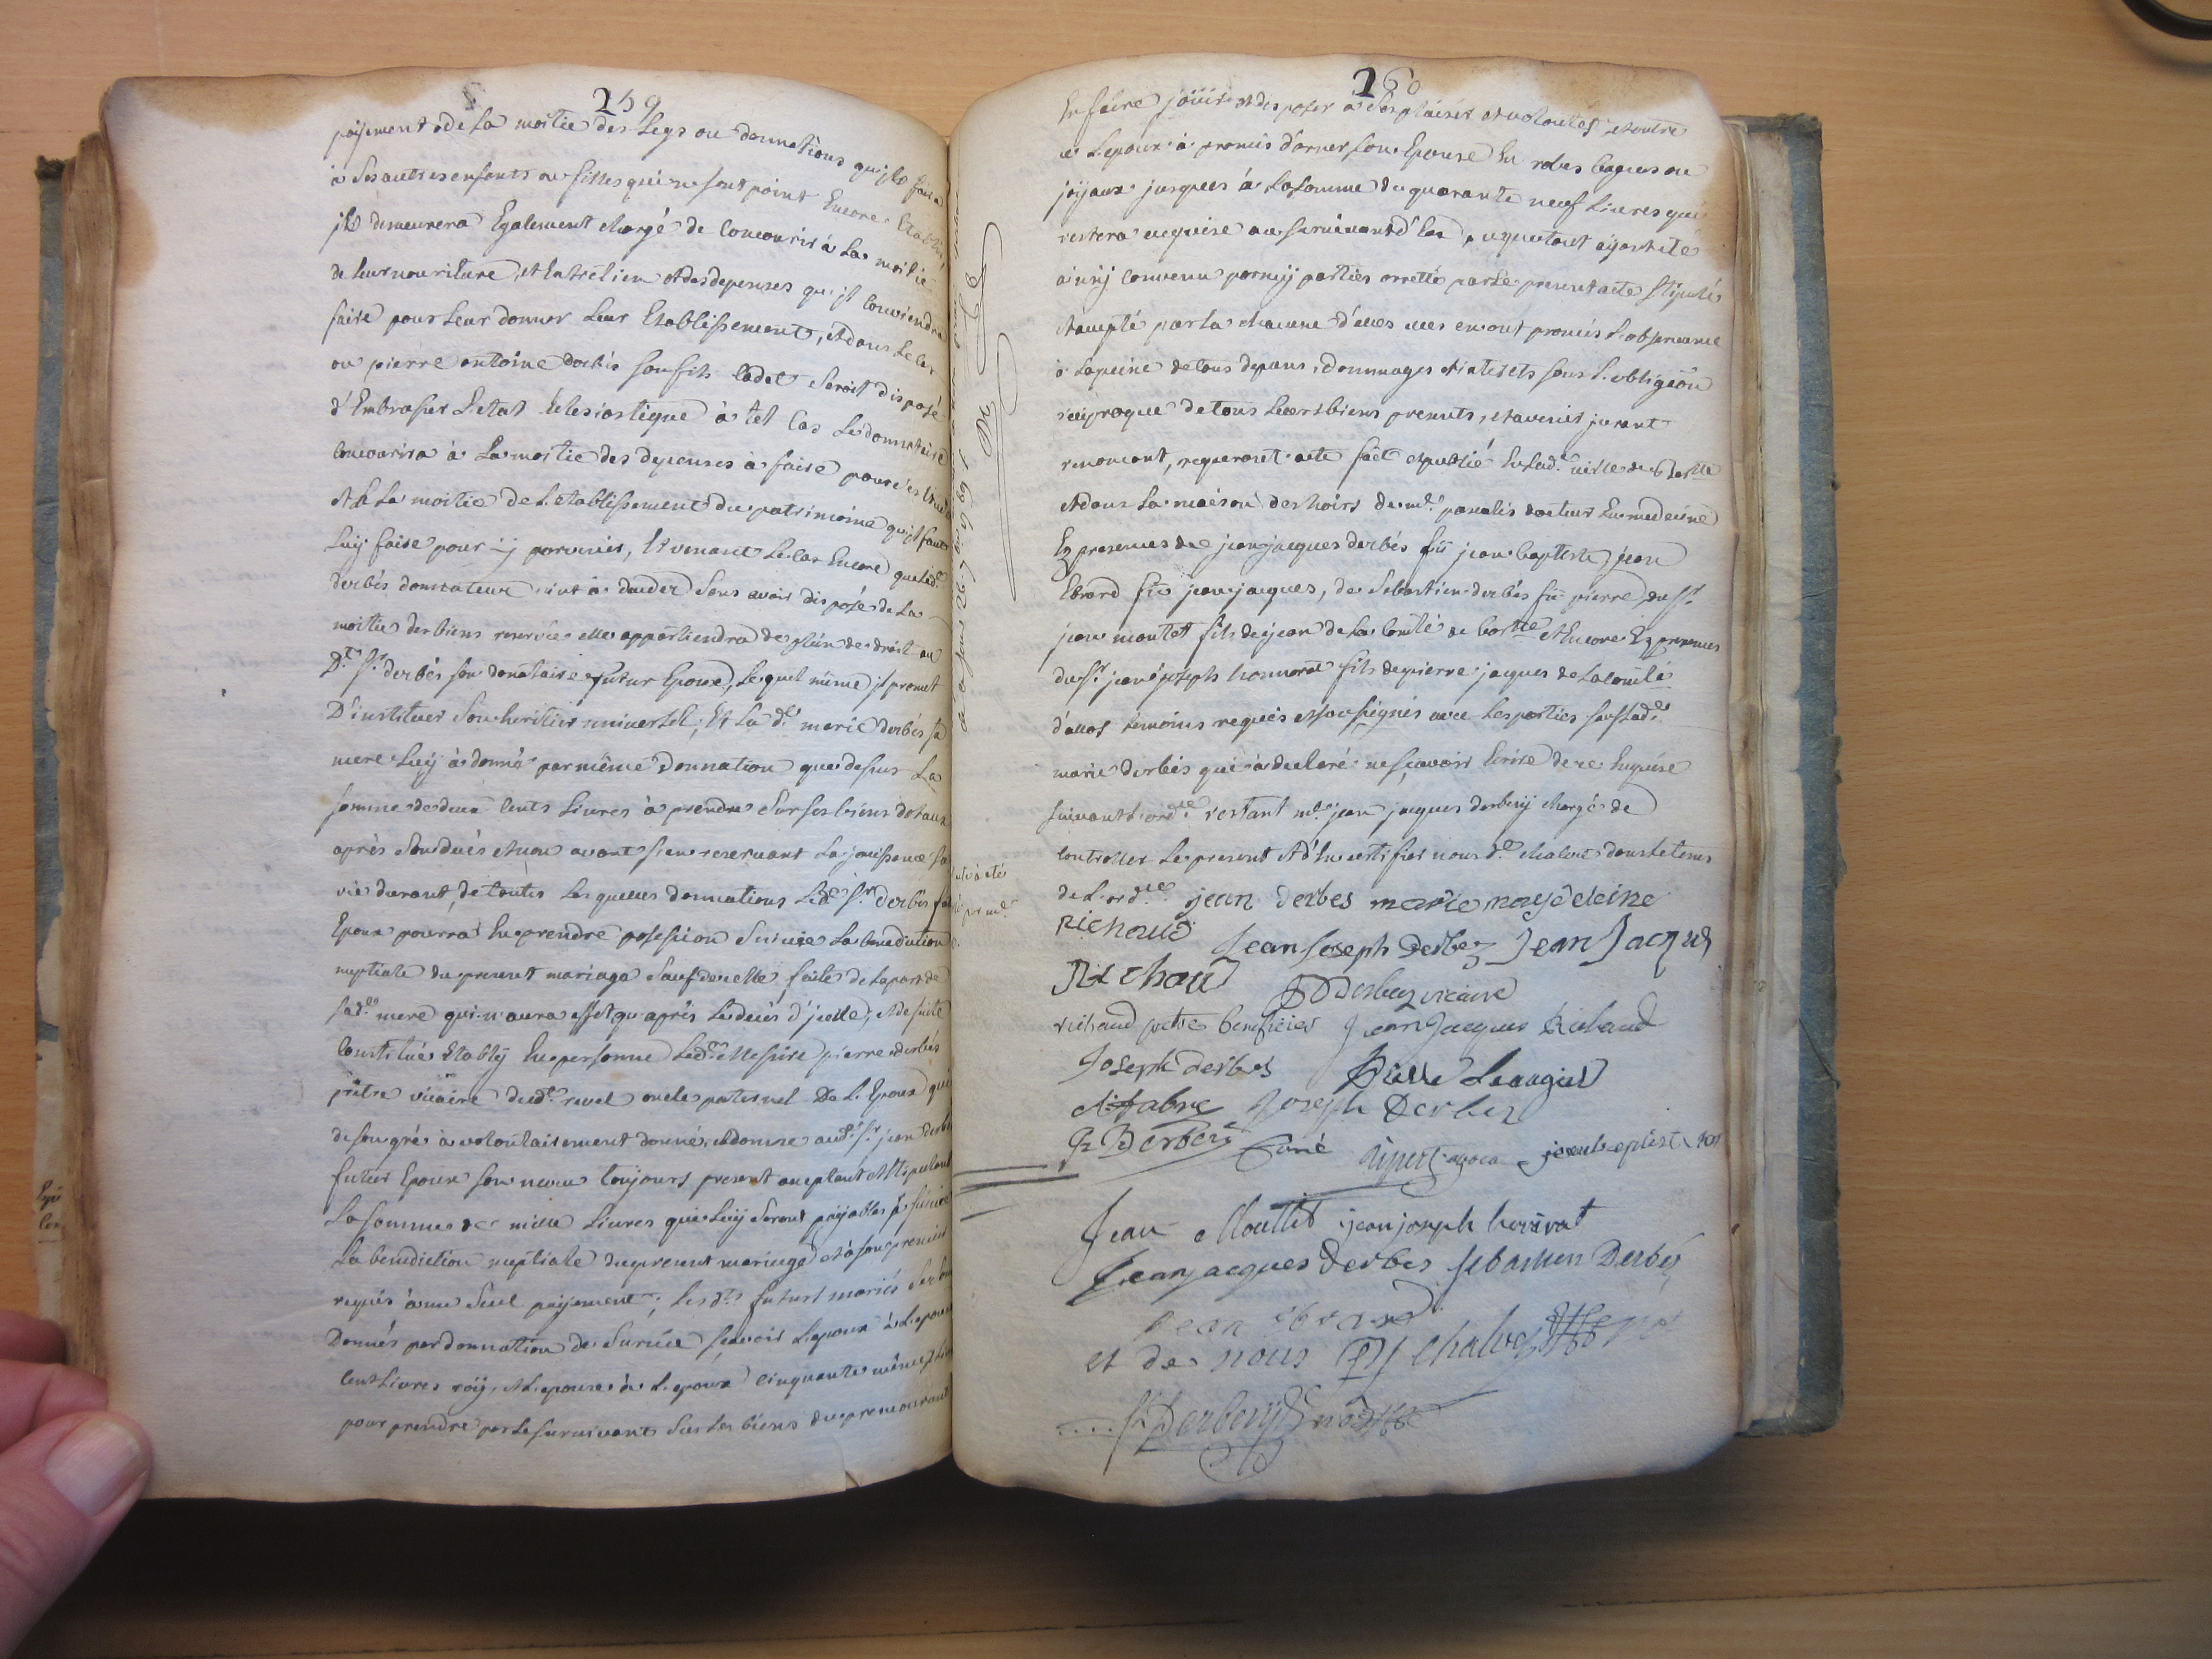 259
payement de la moitié des legs ou donnations qu'il faira
à ses autres enfants ou filles qui ne sont point Encore Etablis,
il demeurera Egalement chargé de concourir à la moitié
de leur nouriture, et Entretien et des depenses qu'il conviendra
faire pour leur donner leur Etablissement, et dans le cas
ou pierre antoine derbés son fils cadet seroit disposé
d'Embrasser l'etat Eclesiastique à tel cas le donnataire
concourira à la moitié des depenses à faire pour
et la moitié de l'etablissement du patrimoine qu'il faut
luy faire pour y parvenir, Et venant le cas Encore que led.
derbés donnateur vint à deceder sans avoir disposé de la
moitié des biens reservés elle appartiendra de plein de droit au
D.t s.r derbés son donataire futur Epoux, lequel même il promet
D'instituer son heritier universel; Et la d.e marie derbés sa
mere luy à donné par même donnation que dessus la
somme de deux cents livres à prendre sur ses biens dotaux
après son dués et non avant s'en reservant la jouissance sa
vie durant, de toutes lesquelles donnations led. s.r derbés futur
Epoux pourra En prendre possession suivie la benediction
nuptiale du present mariage sauf de celle faite de la part de
sad.e mere qui n'aura effet qu'après le dués d'icelle, et de suite
constitué Etably En personne led. Messire pierre derbés
prêtre vicaire dud. revel oncle paternel De l'Epoux qui
de son gré à volontairement donné, et donne aud. s.r jean derbés
futur Epoux son neveu toujours present acceptant et stipulant
la somme de mille livres qui luy seront payables suivie
la benediction nuptiale du present mariage et à son premier
requis à un seul payement; les d.ts futurs mariés se sont
Donnés par donnation de survie sçavoir l'epoux à l'epouse
cent livres roy, et l'epouse à l'epoux cinquante même
pour prendre par le survivant sur les biens du premourant
260
En faire jouir et disposer à ses plaisirs et volontés, et outre
ce l'epoux à promis d'orner son Epouse En robes bagues ou
joyaux jusques à la somme de quarante neuf livres qui
restera acquise au survivant d'Eux, ce que tout ayant eté
ainsy convenu parmy parties arretté par le present acte stipulé
et accepté par la chacune d'elles elles en ont promis l'observance
à la peine de tous depans, dommages et interets sous l'obligeon
reciproque de tous leurs biens presents, et avenir jurant
renoncant, requerant acte fait et publié En lad.e ville de
et dans la maison des hoirs de m.e pascalis docteur En medecine
En presences de jean jacques derbés fû jean baptiste, jean
Ebrard fû jean jacques, de Sebastien derbés fû pierre, du s.r
jean moutet fils de jean de la comté de et Encore En presences
du s.r jean joseph honnorat fils de pierre jacques de la comté
d'allos temoins requis et soussignés avec les parties sauf lad.e
marie derbés qui à declaré ne sçavoir Ecrire de ce Enquise
suivant l'ord.ce restant m.e jean jacques derbesy chargé de
controller le present et d'En certifier nous d.t chalvet dans le tems
de l'ord.ce jean derbes marie magdeleine
Richaud Jean Joseph Derbez Jean Jacques
Richaud Derbez vicaire
richaud pretre beneficier Jean Jacques Richaud
Joseph derbes Laugier
Fabre Joseph Derbez
Derbez Curé
Jean Moutet jean joseph honnorat
Jean jacques derbes sebastien Derbés
jean ebrard
et de nous chalvet
Derbesy